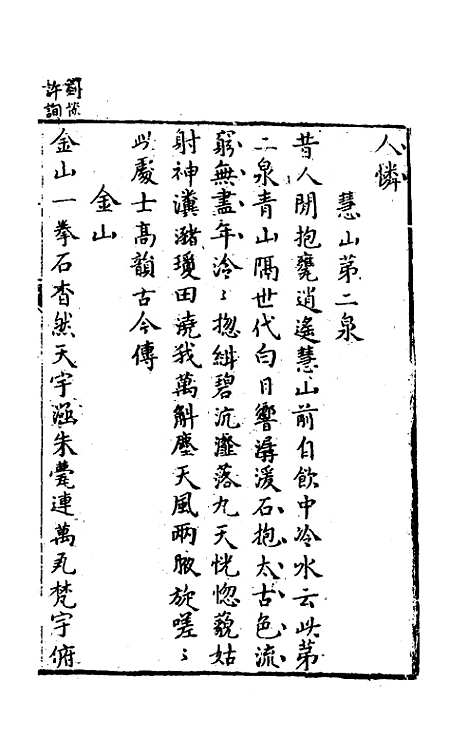 人憐
慧山第二泉
昔人閒抱甕逍遙慧山前自飲中冷水云此第
二泉青山隔世代白日響潺湲石抱太古色流
窮無盡年冷〻揔緝碧沆瀣落九天恍惚藐姑
射神瀵瀦瓊田澆我萬斛塵天風兩腋旋嗟〻
此處士高韻古今傳
金山
金山一拳石杳然天宇涵朱甍連萬瓦梵宇俯
劉惔
許詢